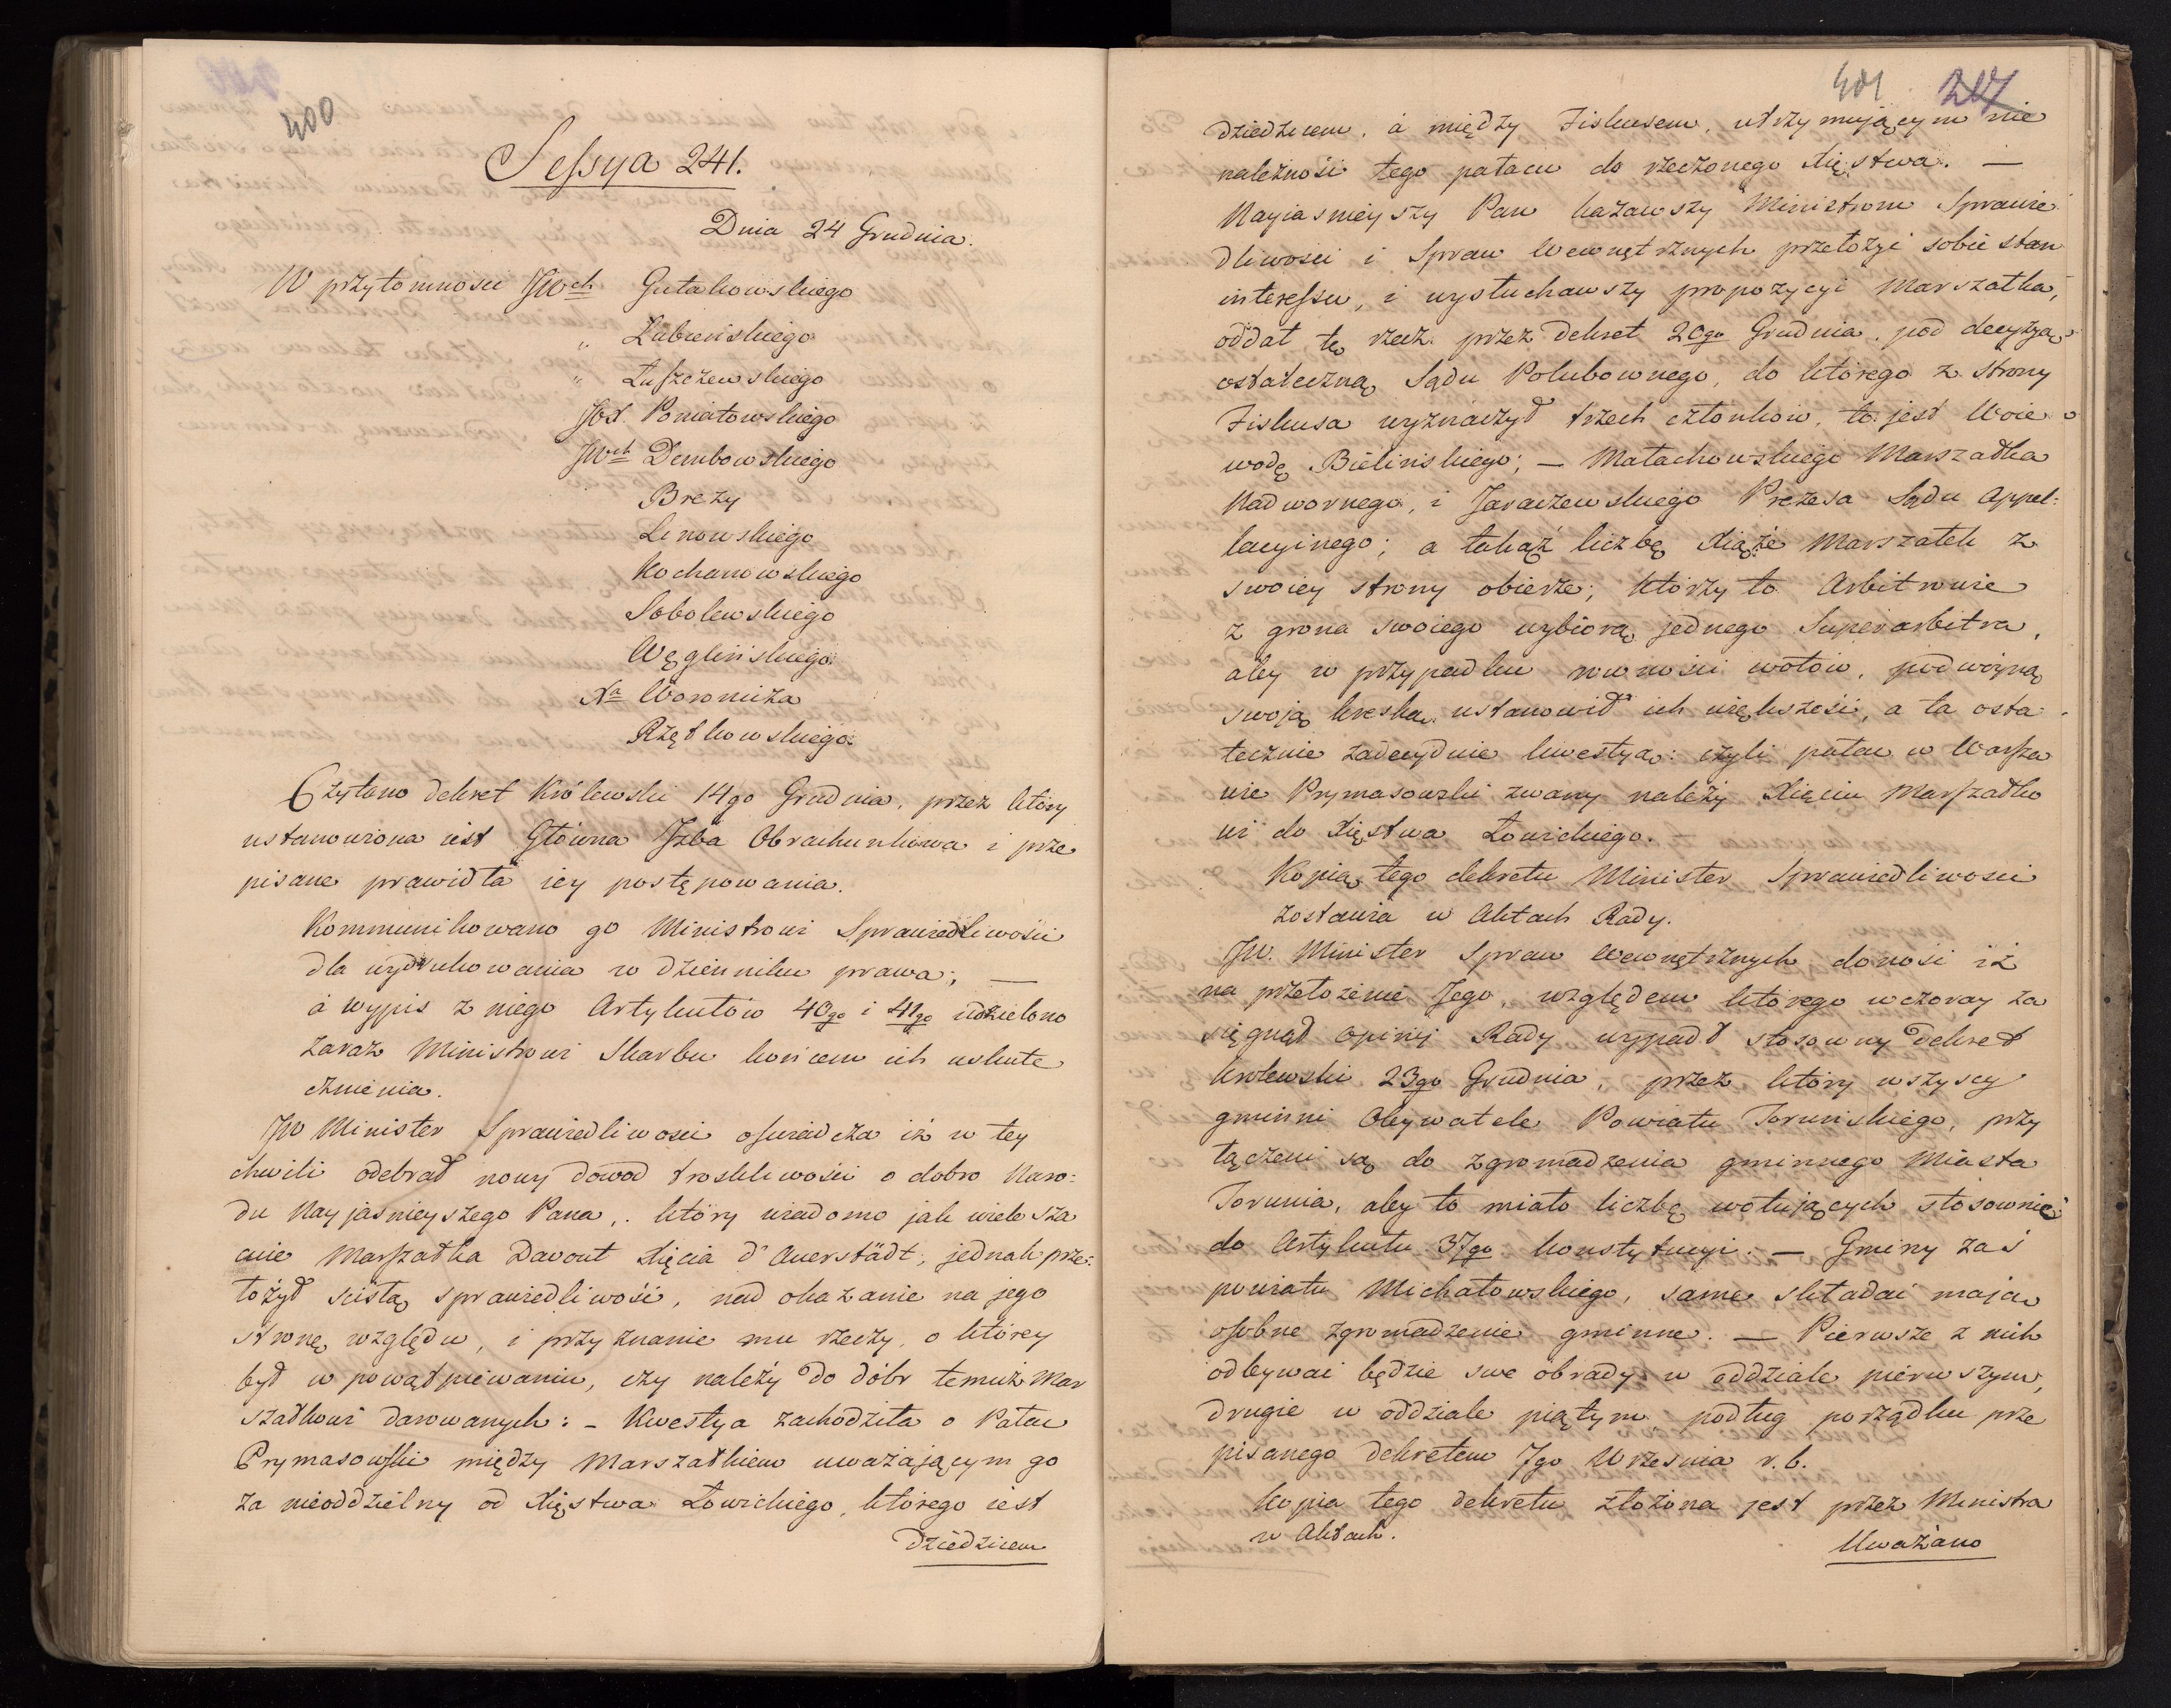 400
Sessya 241.
Dnia 24 Grudnia.
W przytomności JWch Gutakowskiego
„ Łubieńskiego
„ Łuszczewskiego
JOX. Poniatowskiego
JWch Dembowskiego
Brezy
Linowskiego
Kochanowskiego
Sobolewskiego
Węglińskiego
Xa Woronicza
Rzętkowskiego
Czytano dekret Królewski 14go Grudnia, przez który
ustanowiona iest Główna Izba Obrachunkowa i prze
pisane prawidła iey postępowania.
Kommunikowano go Ministrowi Sprawiedliwości
dla wydrukowania w dzienniku prawa; —
a wypis z niego Artykułów 40go i 41go udzielono
zaraz Ministrowi Skarbu końcem ich uskute
cznienia.
JW Minister Sprawiedliwości oświadcza iż w tey
chwili odebrał nowy dowod troskliwości o dobro Naro=
du Nayjaśnieyszego Pana, który wiadomo jak wiele sza
cuie Marszałka Davout Xięcia d'Auerstädt, jednak prze=
łożył ścisłą sprawiedliwość, nad okazanie na jego
stronę względu, i przyznanie mu rzeczy, o którey
był w powątpiewaniu, czy należy do dóbr temuż Mar
szałkowi darowanych: – Kwestya zachodziła o Pałac
Prymasowski między Marszałkiem uważającym go
za nieoddzielny od Xięstwa Łowickiego, którego iest
dziedzicem
401 217
dziedzicem, a między Fiskusem, utrzymującym nie
należność tego pałacu do rzeczonego Xięstwa. —
Nayiaśnieyszy Pan kazawszy Ministrom Sprawie
dliwości i Spraw Wewnętrznych przełożyć sobie stan
interessu, i wysłuchawszy propozycyi Marszałka,
oddał tę rzecz przez dekret 20go Grudnia, pod decyzyą
ostateczną Sądu Polubownego, do którego z strony
Fiskusa wyznaczył trzech członków, to jest Woie
wodę Bielińskiego; — Małachowskiego Marszałka
Nadwornego, i Jaraczewskiego Prezesa Sądu Appel=
lacyinego; a takąż liczbę Xiąże Marszałek z
swoiey strony obierze; którzy to Arbitrowie
z grona swoiego wybiorą jednego Superarbitra,
aby w przypadku równości wotów, podwóyną
swoją kreską ustanowił ich większość, a ta osta
tecznie zadecyduie kwestyą: czyli pałac w Warsza
wie Prymasowski zwany należy Xięciu Marszałko
wi do Xięstwa Łowickiego.
Kopią tego dekretu Minister Sprawiedliwości
zostawia w Aktach Rady.
JW. Minister Spraw Wewnętrznych donosi iż
na przełożenie Jego, względem którego wczoray za
sięgnął opinij Rady wypadł stosowny dekret
królewski 23go Grudnia, przez który wszyscy
gminni Obywatele Powiatu Toruńskiego, przy
łączeni są do zgromadzenia gminnego Miasta
Torunia, aby to miało liczbę wotujących stosownie
do Artykułu 37go konstytucyi. — Gminy zaś
powiatu Michałowskiego, same składać mają
osobne zgromadzenie gminne. — Pierwsze z nich
odbywać będzie swe obrady w oddziale pierwszym,
drugie w oddziale piątym, podług porządku prze
pisanego dekretem 7go Września r. b.
Kopia tego dekretu złożona jest przez Ministra
w Aktach.
Uważano